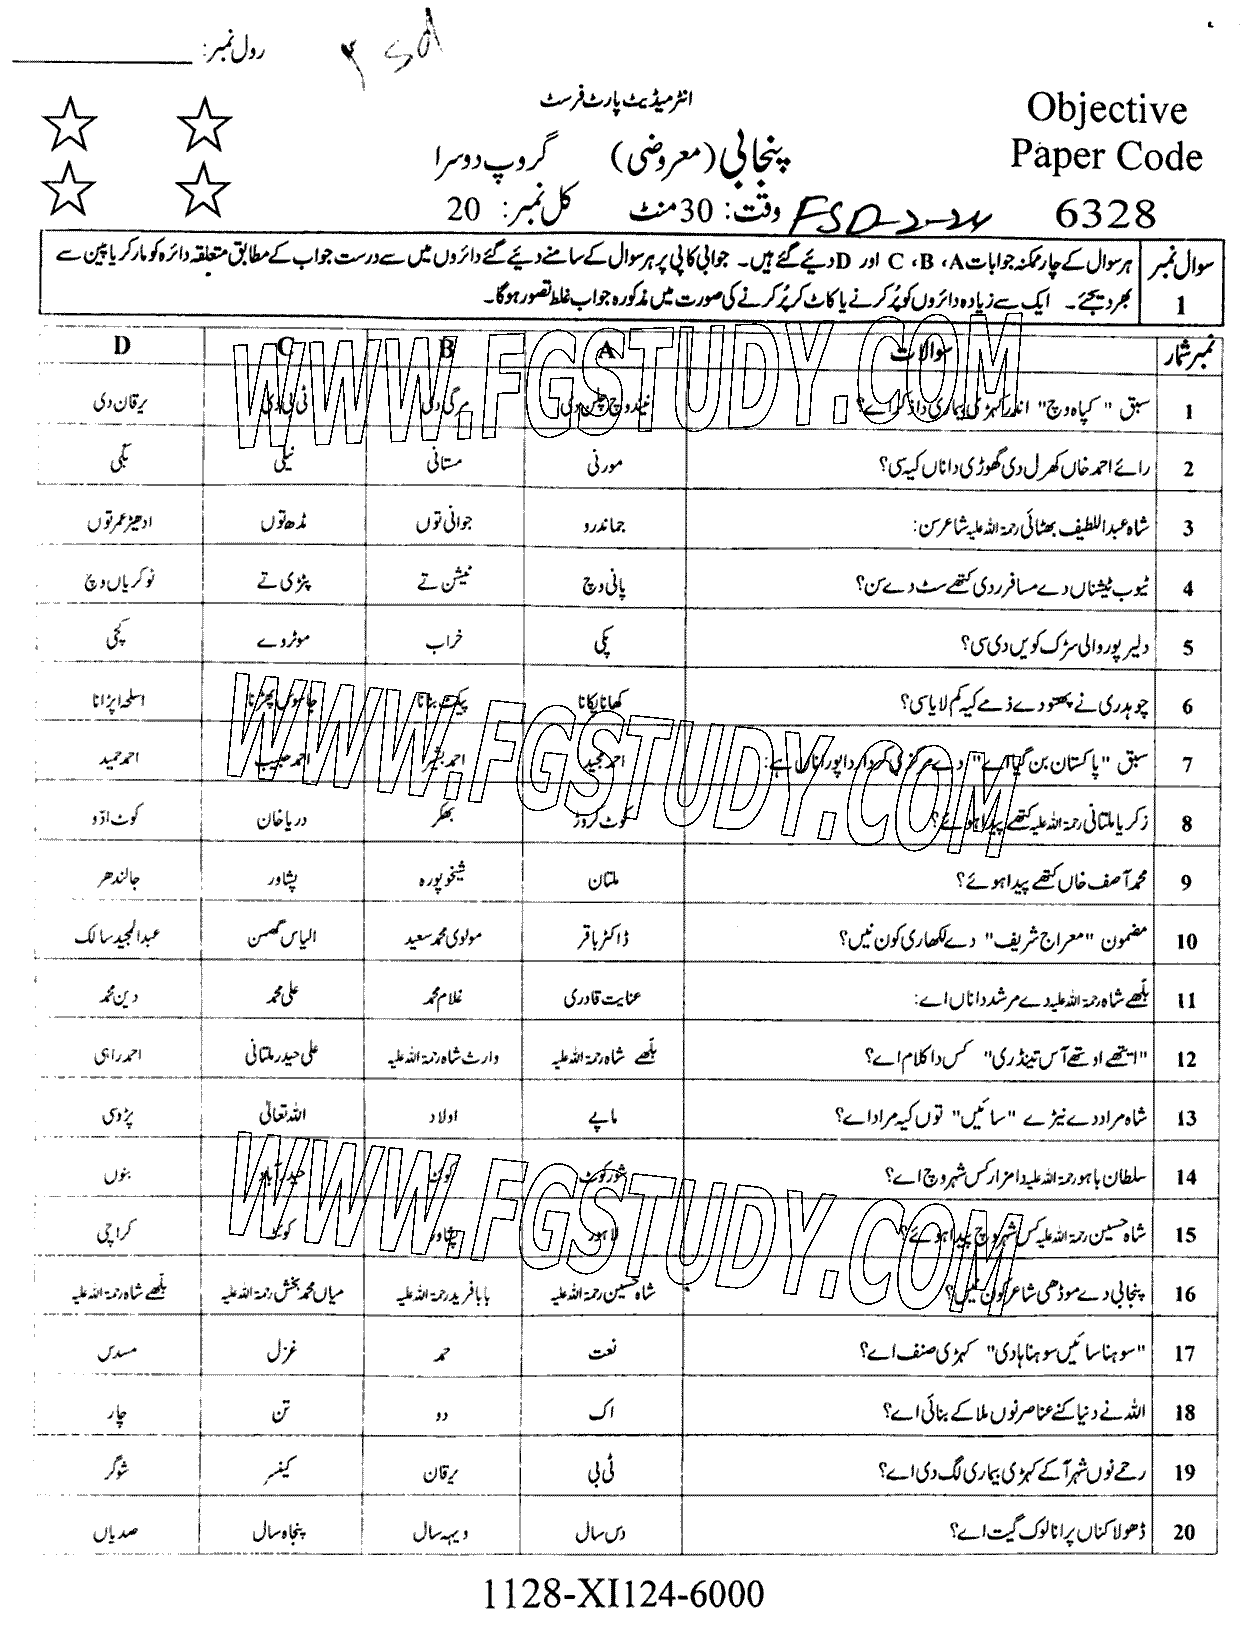 رول نمبر:
انٹرمیڈیٹ پارٹ فرسٹ
Objective
Paper Code
6328
پنجابی (معروضی) گروپ دوسرا
وقت: 30 منٹ کل نمبر: 20
FSD-2-24
سوال نمبر 1
ہر سوال کے چار ممکنہ جوابات A، B، C اور D دیئے گئے ہیں۔ جوابی کاپی پر ہر سوال کے سامنے دیئے گئے دائروں میں سے درست جواب کے مطابق متعلقہ دائرہ کو مارکر یا پین سے
بھر دیجئے۔ ایک سے زیادہ دائروں کو پُر کرنے یا کاٹ کر پُر کرنے کی صورت میں مذکورہ جواب غلط تصور ہوگا۔
نمبر شمار سوالات A B C D
1 سبق "کپاہ وچ" اندر کہڑی بیماری دا ذکر اے؟ نیندر وچ چلن دی مرگی دی ٹی بی دی یرقان دی
2 رائے احمد خاں کھرل دی گھوڑی دا ناں کیہ سی؟ مورنی مستانی نیلی بگی
3 شاہ عبداللطیف بھٹائی رحمۃ اللہ علیہ شاعر سن: جماندرو جوانی توں مڈھ توں ادھیڑ عمر توں
4 ٹیوب ٹیشناں دے مسافر ردی کتھے سٹ دے سن؟ پانی وچ ٹیشن تے پٹڑی تے ٹوکریاں وچ
5 دلیر پور والی سڑک کویں دی سی؟ پکی خراب موٹروے کچی
6 چوہدری نے پھتو دے ذمے کیہ کم لایا سی؟ کھانا پکانا پیکٹ بنانا جاسوس پھڑنا اسلحہ اپڑانا
7 سبق "پاکستان بن گیا اے" دے مرکزی کردار دا پورا ناں ہے: احمد مجید احمد بشیر احمد حبیب احمد حمید
8 زکریا ملتانی رحمۃ اللہ علیہ کتھے پیدا ہوئے؟ کوٹ کروڑ بھکر دریا خان کوٹ ادّو
9 محمد آصف خاں کتھے پیدا ہوئے؟ ملتان شیخوپورہ پشاور جالندھر
10 مضمون "معراج شریف" دے لکھاری کون نیں؟ ڈاکٹر باقر مولوی محمد سعید الیاس گھمن عبدالمجید سالک
11 بلّھے شاہ رحمۃ اللہ علیہ دے مرشد دا ناں اے: عنایت قادری غلام محمد علی محمد دین محمد
12 "ایتھے اوتھے آس تینڈری" کس دا کلام اے؟ بلّھے شاہ رحمۃ اللہ علیہ وارث شاہ رحمۃ اللہ علیہ علی حیدر ملتانی احمد راہی
13 شاہ مراد دے نیڑے "سائیں" توں کیہ مراد اے؟ ماپے اولاد اللہ تعالیٰ پڑوسی
14 سلطان باہو رحمۃ اللہ علیہ دا مزار کس شہر وچ اے؟ شورکوٹ کوٹ حیدرآباد بنوں
15 شاہ حسین رحمۃ اللہ علیہ کس شہر وچ پیدا ہوئے؟ لاہور پشاور کوئٹہ کراچی
16 پنجابی دے موڈھی شاعر کون نیں؟ شاہ حسین رحمۃ اللہ علیہ بابا فرید رحمۃ اللہ علیہ میاں محمد بخش رحمۃ اللہ علیہ بلّھے شاہ رحمۃ اللہ علیہ
17 "سوہنا سائیں سوہنا ہادی" کہڑی صنف اے؟ نعت حمد غزل مسدس
18 اللہ نے دنیا کنے عناصر نوں ملا کے بنائی اے؟ اک دو تن چار
19 رحمے نوں شہر آ کے کہڑی بیماری لگ دی اے؟ ٹی بی یرقان کینسر شوگر
20 ڈھولا کناں پرانا لوک گیت اے؟ دس سال ویہہ سال پنجاہ سال صدیاں
WWW.FGSTUDY.COM
WWW.FGSTUDY.COM
WWW.FGSTUDY.COM
1128-XI124-6000